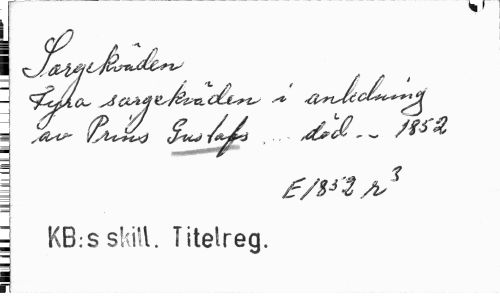 Sorgekväden
Fyra sorgekväden i anledning
av Prins Gustafs ... död -- 1852
E1852 r³
KB:s skill. Titelreg.